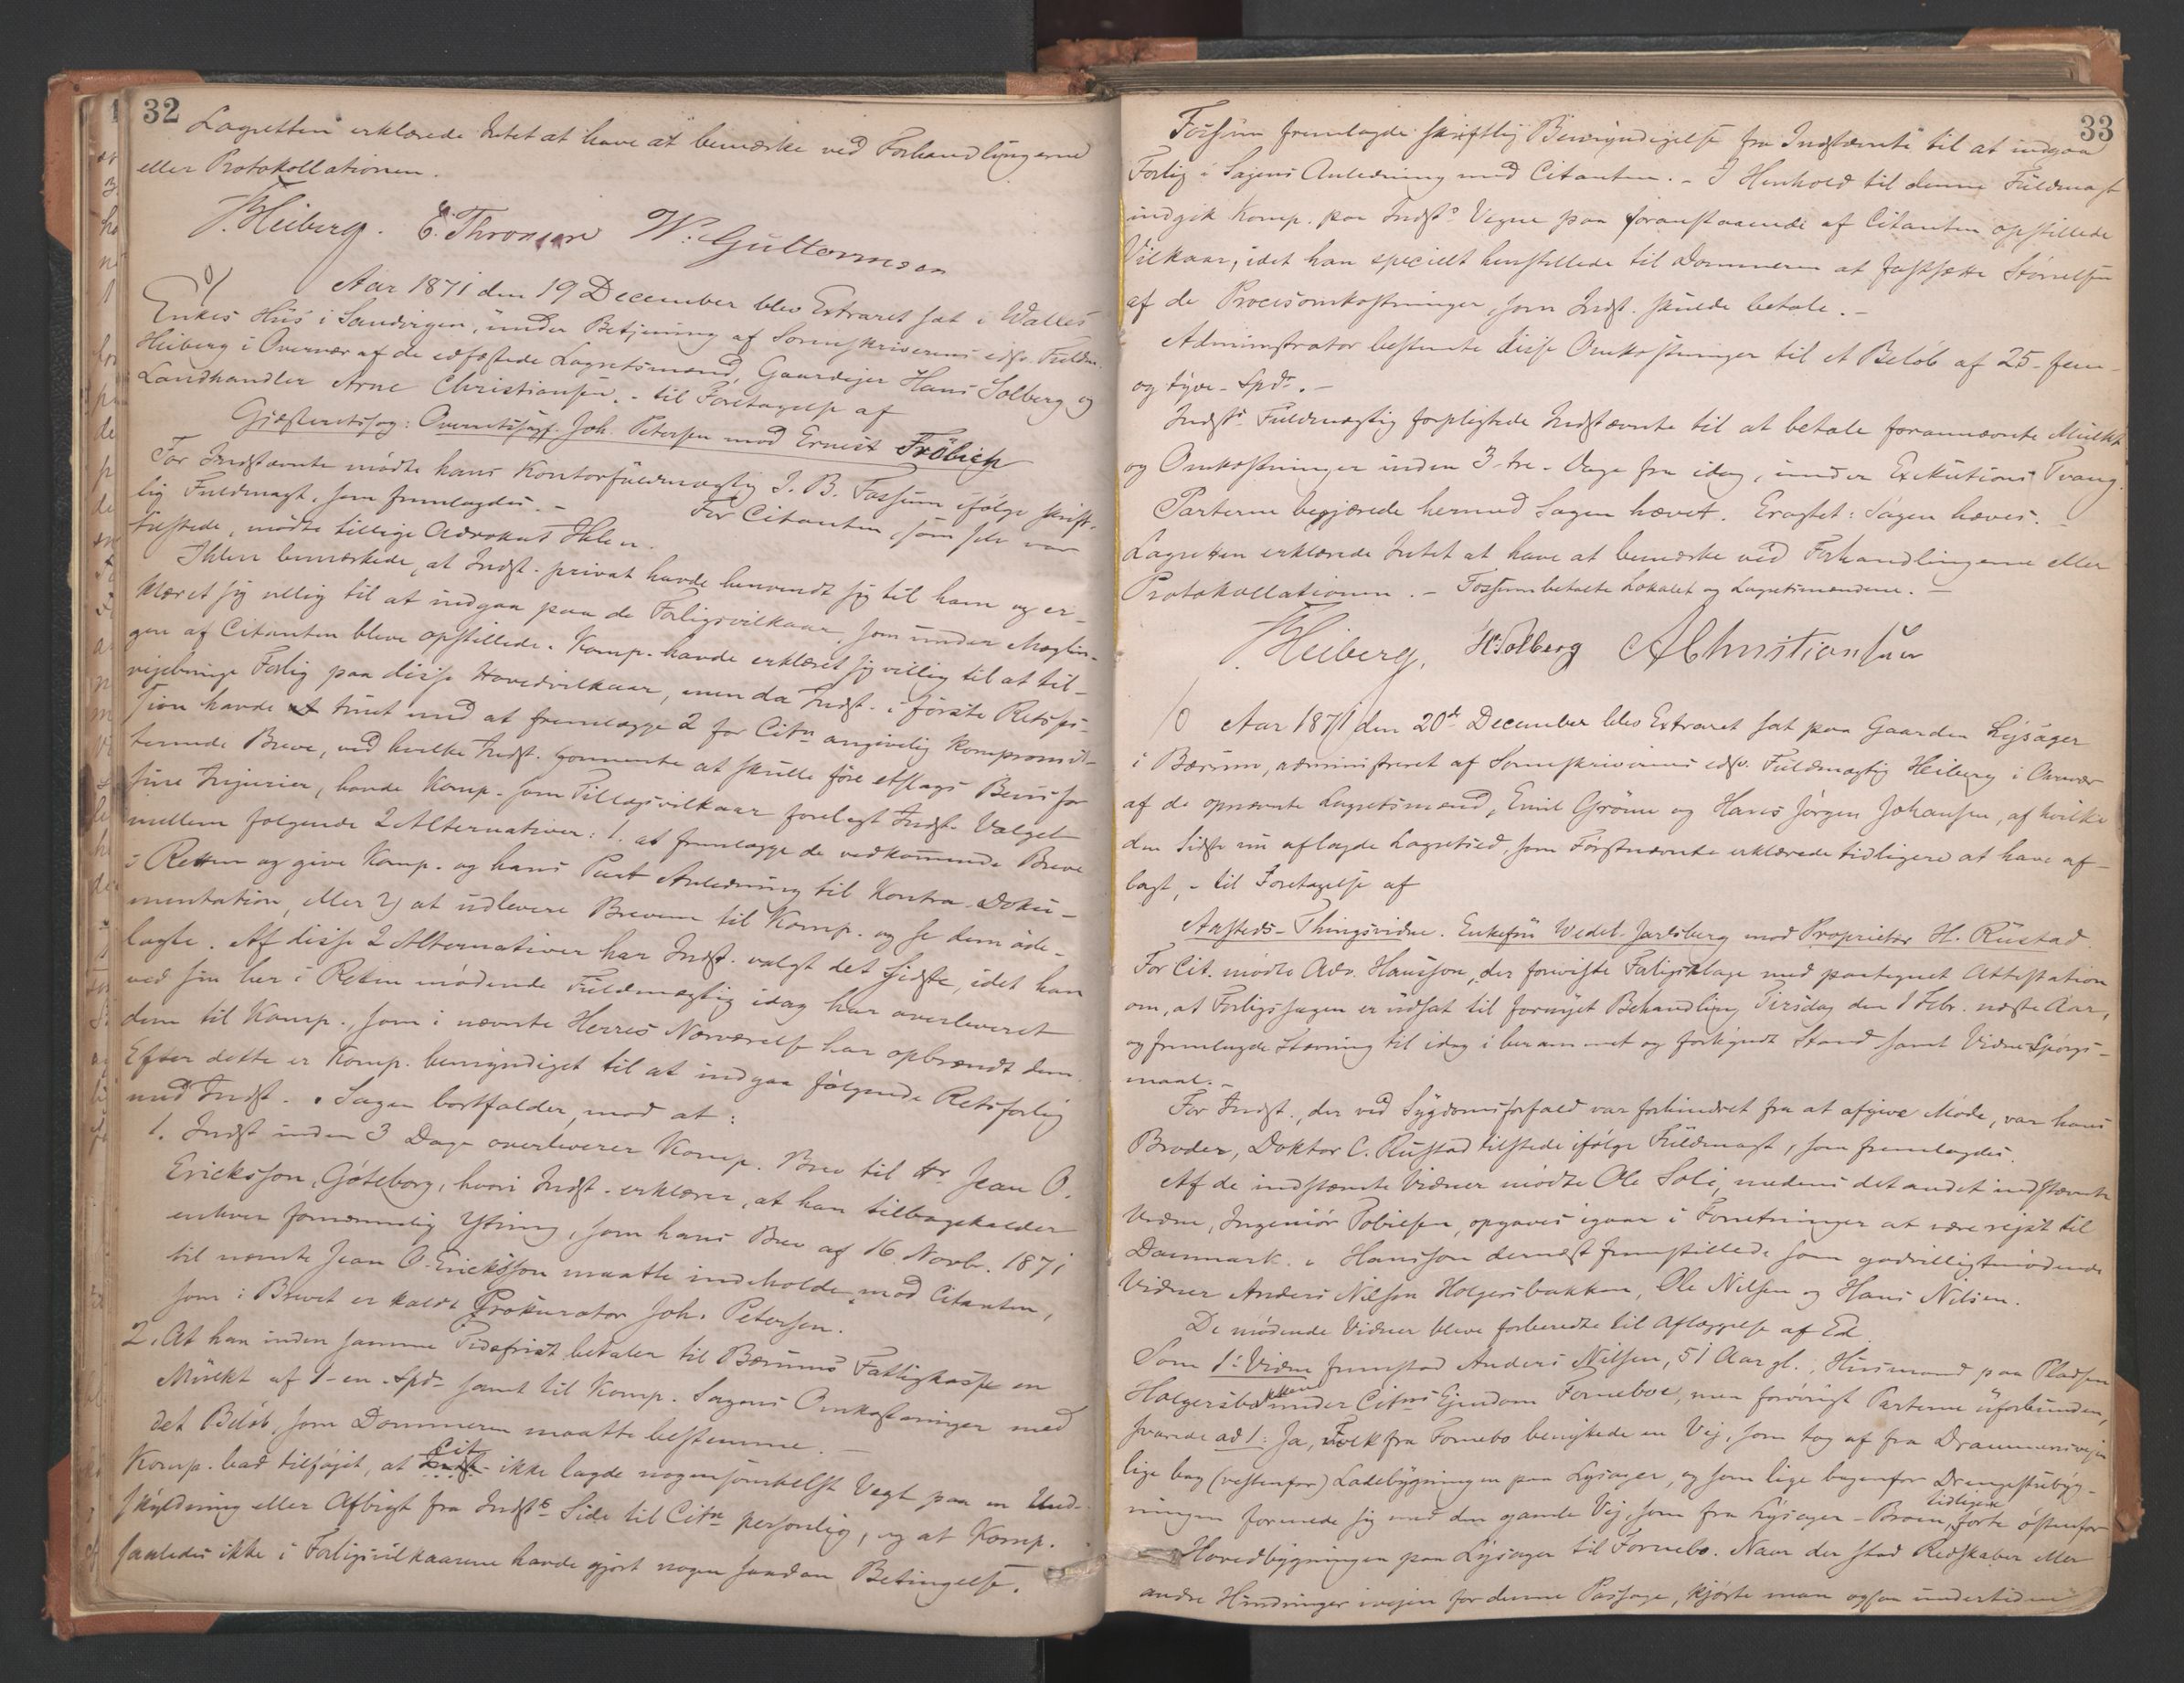 32
Lagretten erklærede Intet at have at bemærke ved Forhandlingerne
eller Protokollationen.
Heiberg. E. Thronsen W. Guttormsen
Aar 1871 den 19 December blev Extraret sat i Walles
Enkes Hus i Sandvigen, under Betjening af Sorenskriverens edsv. Fuldm.
Heiberg i Overvær af de edfæstede Lagretsmænd, Gaardejer Hans Solberg og
Landhandler Arne Christiansen. - til Foretagelse af
Gjæsteretssag: Overretssagf. Joh. Petersen mod Ernest Fröbich
For Indstævnte mødte hans Kontorfuldmægtig J. B. Fossum ifølge skrift-
lig Fuldmagt, som fremlagdes. - For Citanten, som selv var
tilstede, mødte tillige Advokat Ihlen.
Ihlen bemærkede, at Indst. privat havde henvendt sig til ham og er-
klæret sig villig til at indgaa paa de Forligsvilkaar, som under Mæglin-
gen af Citanten bleve opstillede. Komp. havde erklæret sig villig til at til-
vejebringe Forlig paa disse Hovedvilkaar, men da Indst. i første Retsses-
sion havde truet med at fremlægge 2 for Citn angivelig kompromit-
terende Breve, ved hvilke Indst. formente at skulle føre etslags Bevis for
sine Injurier, havde Komp. som Tillægsvilkaar forelagt Indst. Valget
mellem følgende 2 Alternativer: 1. at fremlægge de vedkommende Breve
i Retten og give Komp. og hans Part Anledning til Kontra-Doku-
mentation, eller 2) at udlevere Brevene til Komp. og se dem øde-
lagte. Af disse 2 Alternativer har Indst. valgt det sidste, idet han
ved sin her i Retten mødende Fuldmægtig idag har overleveret
dem til Komp., som i nævnte Herres Nærværelse har opbrændt dem.
Efter dette er Komp. bemyndiget til at indgaa følgende Retsforlig
med Indst. . Sagen bortfalder, mod at:
1. Indst inden 3 Dage overleverer Komp. Brev til Hr Jean O.
Ericksson, Göteborg, hvori Indst. erklærer, at han tilbagekalder
enhver fornærmelig Ytring, som hans Brev af 16 Novbr. 1871
til nævnte Jean O. Ericksson maatte indeholde mod Citanten,
som i Brevet er kaldt Prokurator Joh. Petersen.
2. At han inden samme Tidsfrist betaler til Bærums Fattigkasse en
Mulkt af 1 - en - Spd. samt til Komp. Sagens Omkostninger med
det Beløb, som Dommeren maatte bestemme. -
Komp. bad tilføjet, at Cit. ikke lagde nogensomhelst Vegt paa en Und-
skyldning eller Afbigt fra Indsts Side til Citn personlig, og at Komp.
saaledes ikke i Forligsvilkaarene havde gjort nogen saadan Betingelse.
33
Fossum fremlagde skriftlig Bemyndigelse fra Indstævnte til at indgaa
Forlig i Sagens Anledning med Citanten. - I Henhold til denne Fuldmagt
indgik Komp. paa Indsts Vegne paa foranstaaende af Citanten opstillede
Vilkaar, idet han specielt henstillede til Dommeren at fastsætte Størrelsen
af de Procesomkostninger, som Indst. skulde betale. -
Administrator bestemte disse Omkostninger til et Beløb af 25 - fem-
og tyve - Spdr. -
Indsts Fuldmægtig forpligtede Indstævnte til at betale forannævnte Mulkt
og Omkostninger inden 3 - tre - Dage fra idag, under Exekutions Tvang.
Parterne begjærede hermed Sagen hævet. Eragtet: Sagen hæves. -
Lagretten erklærede Intet at have at bemærke ved Forhandlingerne eller
Protokollationen. - Fossum betalte Lokalet og Lagretsmændene. -
Heiberg, H Solberg A Christiansen
Aar 1871 den 20de December blev Extraret sat paa Gaarden Lysager
i Bærum, administreret af Sorenskriverens edsv. Fuldmægtig Heiberg i Overvær
af de opnævnte Lagretsmænd, Emil Grönn og Hans Jörgen Johansen, af hvilke
den Sidste nu aflagde Lagretsed, som Förstnævnte erklærede tidligere at have af-
lagt, - til Foretagelse af
Aasteds-Thingsvidne. Enkefru Wedel-Jarlsberg mod Proprietær H. Rustad.
For Cit. mødte Adv. Hansson, der foreviste Forligsklage med paategnet Attestation
om, at Forligssagen er udsat til fornyet Behandling Tirsdag den 1 Febr. næste Aar,
og fremlagde Stævning til idag i berammet og forkyndt Stand samt Vidne-Spørgs-
maal. -
For Indst., der ved Sygdomsforfald var forhindret fra at afgive Møde, var hans
Broder, Doktor C. Rustad tilstede ifølge Fuldmagt, som fremlagdes.
Af de indstævnte Vidner mødte Ole Soli, medens det andet indstævnte
Vidne, Ingeniør Tobiesen, opgaves igaar i Forretninger at være rejst til
Danmark. Hansson dernæst fremstillede som godvilligtmødende
Vidner Anders Nilsen Holgersbakken, Ole Nilsen og Hans Nilsen.
De mødende Vidner bleve forberedte til Aflæggelse af Ed.
Som 1ste Vidne fremstod Anders Nilsen, 51 Aar gl., Husmand paa Pladsen
Holgersbakken under Citns Ejendom Forneboe, men forøvrigt Parterne uforbunden,
svarede ad 1: Ja, Folk fra Fornebo benyttede en Vej, som tog af fra Drammensvejen
lige bag (vestenfor) Ladebygningen paa Lysager, og som lige bagenfor Drengestubyg-
ningen forenede sig med den gamle Vej, som fra Lysager-Broen, tidligere førte østenfor
Hovedbygningen paa Lysager til Fornebo. Naar der stod Redskaber eller
andre Hindringer ivejen for denne Passage, kjørte man ogsaa undertiden